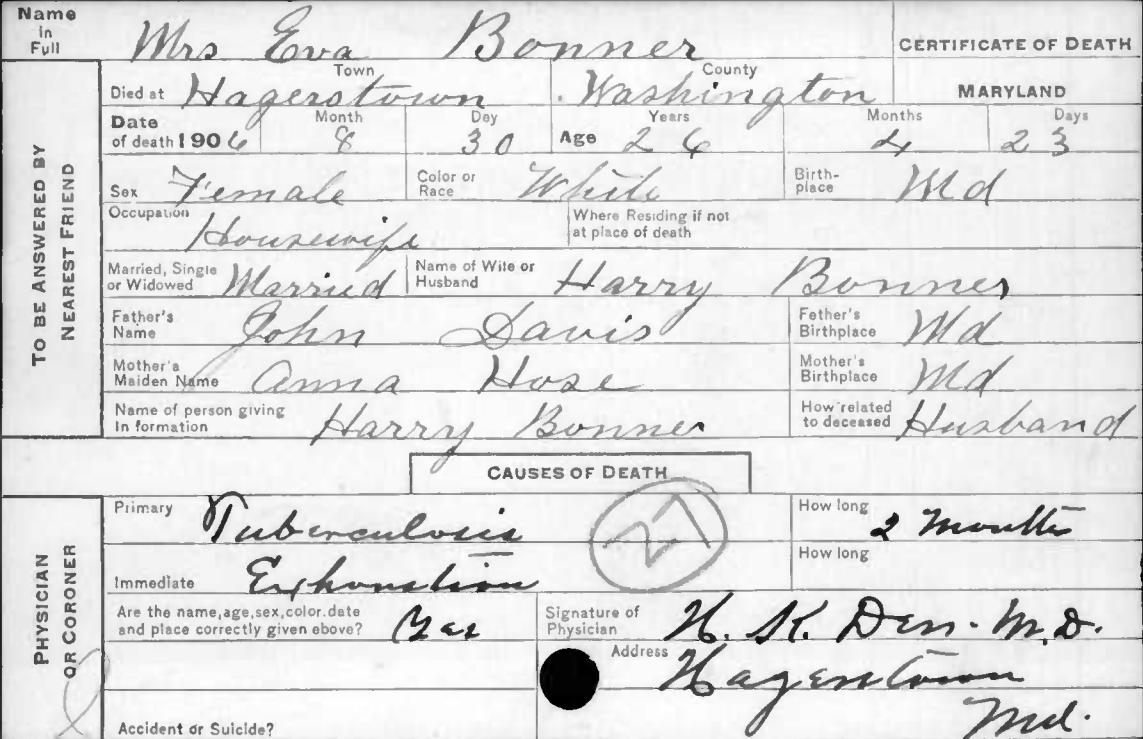 Name in Full Mrs Eva Bonner CERTIFICATE OF DEATH
TO BE ANSWERED BY NEAREST FRIEND
Died at Town Hagerstown County Washington MARYLAND
Date of death 1906 Month 8 Day 30 Age Years 26 Months 4 Days 23
Sex Female Color or Race White Birth-place Md
Occupation Housewife Where Residing if not at place of death
Married, Single or Widowed Married Name of Wife or Husband Harry Bonner
Father's Name John Davis Father's Birthplace Md
Mother's Maiden Name Anna Hose Mother's Birthplace Md
Name of person giving In formation Harry Bonner How related to deceased Husband
CAUSES OF DEATH
PHYSICIAN OR CORONER
Primary Tuberculosis 27 How long 2 Months
Immediate Exhaustion How long
Are the name, age, sex, color. date and place correctly given above? Yes Signature of Physician H. K. M.D.
Address Hagerstown
Md.
Accident or Suicide?